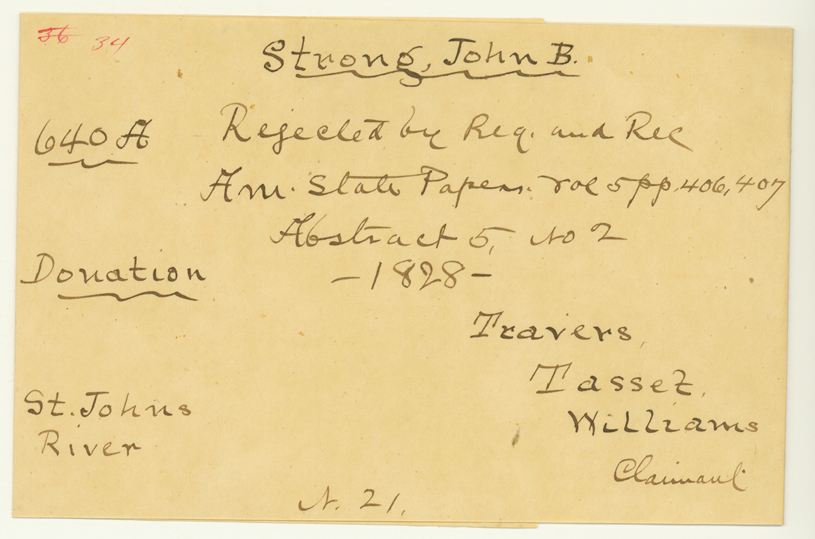 36 34
Strong, John B.
640 A Rejected by Reg. and Rec
Am. State Papers. vol 5 pp. 406, 407
Abstract 5, No 2
Donation
- 1828 -
Travers,
Tassez,
Williams
Claimant
St. Johns
River
N. 21.